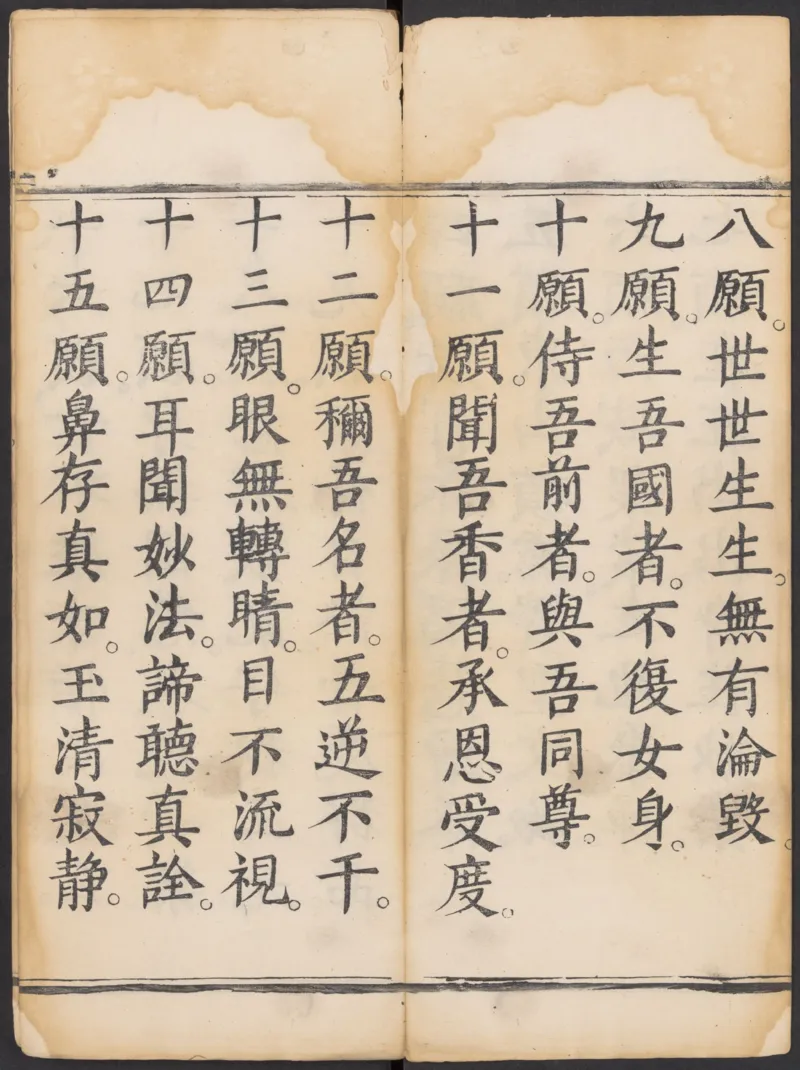 八願。世世生生。無有淪毀。
九願。生吾國者。不復女身。
十願。侍吾前者。與吾同尊。
十一願。聞吾香者。承恩受度。
十二願。稱吾名者。五逆不干。
十三願。眼無轉睛。目不流視。
十四願。耳聞妙法。諦聽真詮。
十五願。鼻存真如。玉清寂静。